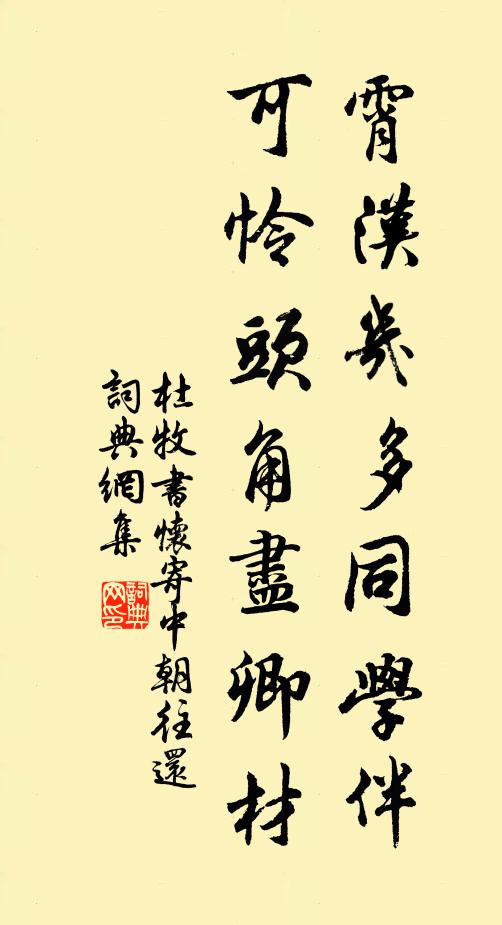 霄漢幾多同學伴
可憐頭角盡卿材
杜牧書懷寄中朝往還
詞典網集
詞典网印